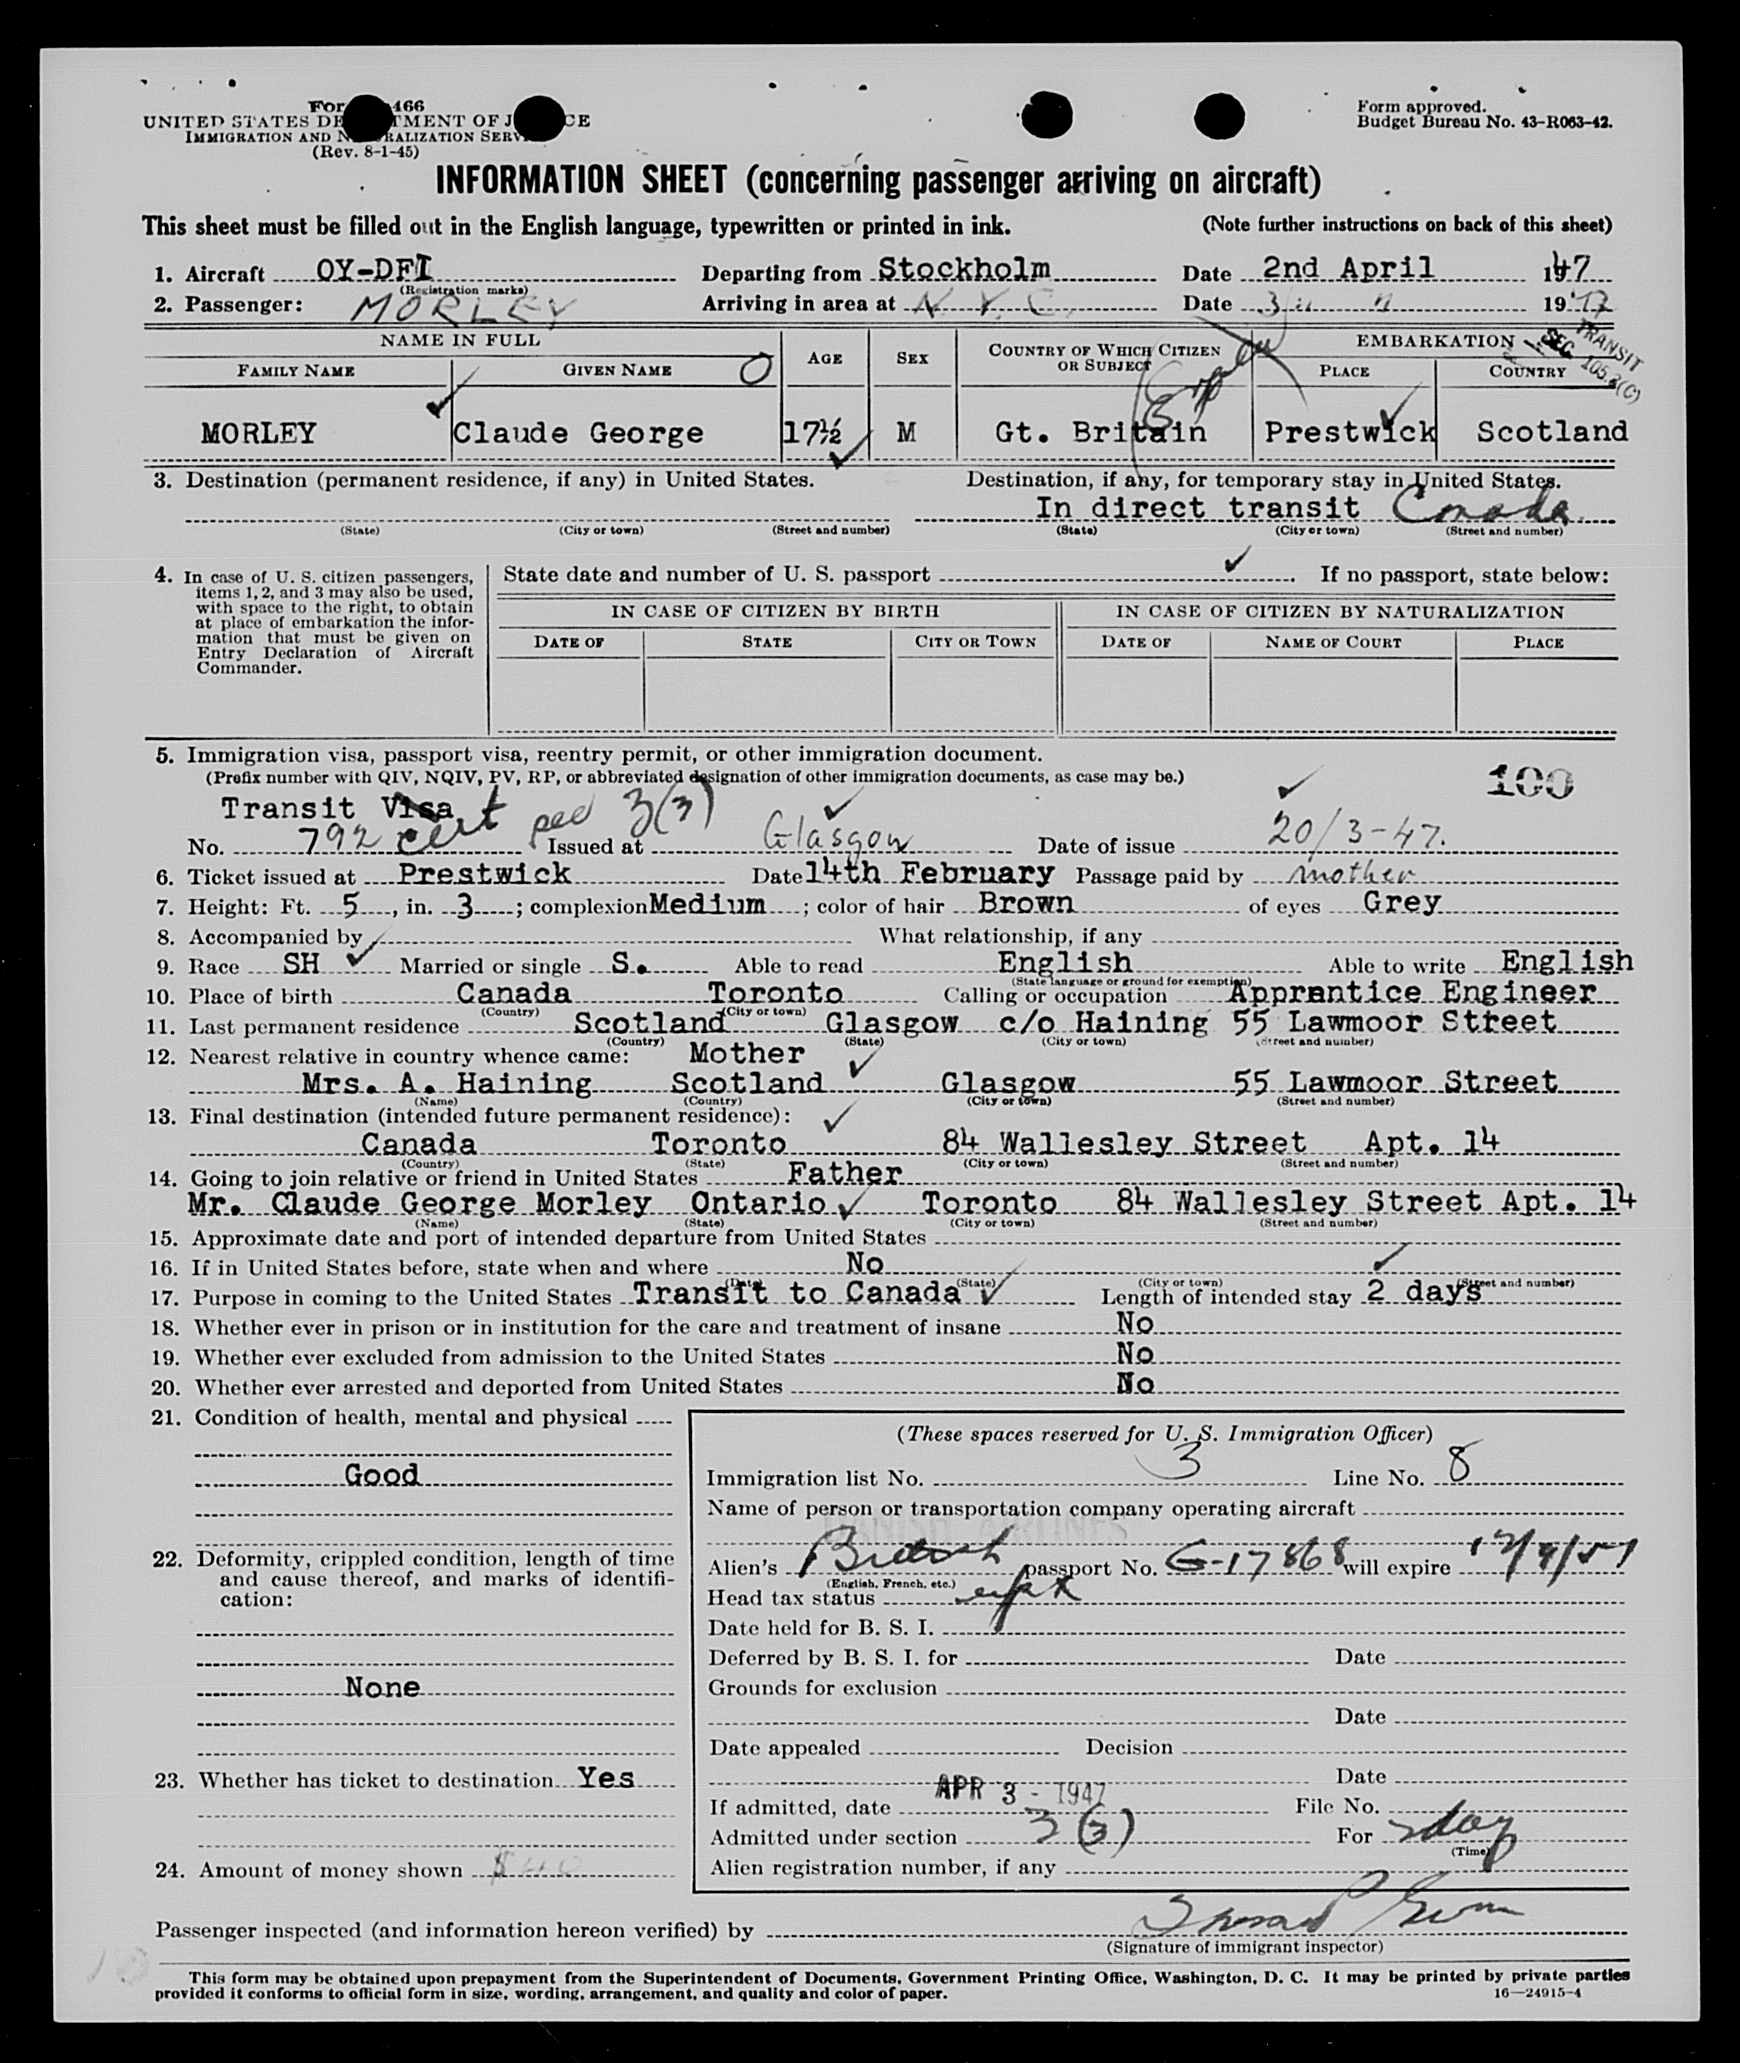 Form 466
UNITED STATES DEPARTMENT OF JUSTICE
IMMIGRATION AND NATURALIZATION SERVICE
(Rev. 8-1-45)
Form approved.
Budget Bureau No. 43-R063-42.
INFORMATION SHEET (concerning passenger arriving on aircraft)
This sheet must be filled out in the English language, typewritten or printed in ink. (Note further instructions on back of this sheet)
1. Aircraft OY-DFI Departing from Stockholm Date 2nd April 1947
(Registration marks)
2. Passenger: MORLEY Arriving in area at N.Y.C. Date 3 1947
TRANSIT
SEC. 105.3(C)
NAME IN FULL AGE SEX COUNTRY OF WHICH CITIZEN OR SUBJECT EMBARKATION
FAMILY NAME GIVEN NAME PLACE COUNTRY
MORLEY Claude George 17½ M Gt. Britain Prestwick Scotland
3. Destination (permanent residence, if any) in United States. Destination, if any, for temporary stay in United States.
In direct transit Canada
(State) (City or town) (Street and number) (State) (City or town) (Street and number)
4. In case of U. S. citizen passengers, items 1, 2, and 3 may also be used, with space to the right, to obtain at place of embarkation the information that must be given on Entry Declaration of Aircraft Commander.
State date and number of U. S. passport . If no passport, state below:
IN CASE OF CITIZEN BY BIRTH IN CASE OF CITIZEN BY NATURALIZATION
DATE OF STATE CITY OR TOWN DATE OF NAME OF COURT PLACE
5. Immigration visa, passport visa, reentry permit, or other immigration document.
(Prefix number with QIV, NQIV, PV, RP, or abbreviated designation of other immigration documents, as case may be.)
100
Transit Visa cert 3(3)
No. 792 Issued at Glasgow Date of issue 20/3-47.
6. Ticket issued at Prestwick Date 14th February Passage paid by mother
7. Height: Ft. 5, in. 3; complexion Medium; color of hair Brown of eyes Grey
8. Accompanied by What relationship, if any
9. Race SH Married or single S. Able to read English Able to write English
(State language or ground for exemption)
10. Place of birth Canada Toronto Calling or occupation Apprentice Engineer
(Country) (City or town)
11. Last permanent residence Scotland Glasgow c/o Haining 55 Lawmoor Street
(Country) (State) (City or town) (Street and number)
12. Nearest relative in country whence came: Mother
Mrs. A. Haining Scotland Glasgow 55 Lawmoor Street
(Name) (Country) (City or town) (Street and number)
13. Final destination (intended future permanent residence):
Canada Toronto 84 Wallesley Street Apt. 14
(Country) (State) (City or town) (Street and number)
14. Going to join relative or friend in United States Father
Mr. Claude George Morley Ontario Toronto 84 Wallesley Street Apt. 14
(Name) (State) (City or town) (Street and number)
15. Approximate date and port of intended departure from United States
16. If in United States before, state when and where No
(Date) (State) (City or town) (Street and number)
17. Purpose in coming to the United States Transit to Canada Length of intended stay 2 days
18. Whether ever in prison or in institution for the care and treatment of insane No
19. Whether ever excluded from admission to the United States No
20. Whether ever arrested and deported from United States No
21. Condition of health, mental and physical
Good
22. Deformity, crippled condition, length of time and cause thereof, and marks of identification:
None
23. Whether has ticket to destination Yes
24. Amount of money shown $40
(These spaces reserved for U. S. Immigration Officer)
Immigration list No. 3 Line No. 8
Name of person or transportation company operating aircraft
DANISH AIRLINES
Alien's British passport No. G-17868 will expire
(English, French, etc.)
Head tax status
Date held for B. S. I.
Deferred by B. S. I. for Date
Grounds for exclusion
Date
Date appealed Decision
Date
If admitted, date APR 3 - 1947 File No.
Admitted under section 3(3) For 2 day
(Time)
Alien registration number, if any
Passenger inspected (and information hereon verified) by
(Signature of immigrant inspector)
This form may be obtained upon prepayment from the Superintendent of Documents, Government Printing Office, Washington, D. C. It may be printed by private parties
provided it conforms to official form in size, wording, arrangement, and quality and color of paper. 16—24915-4